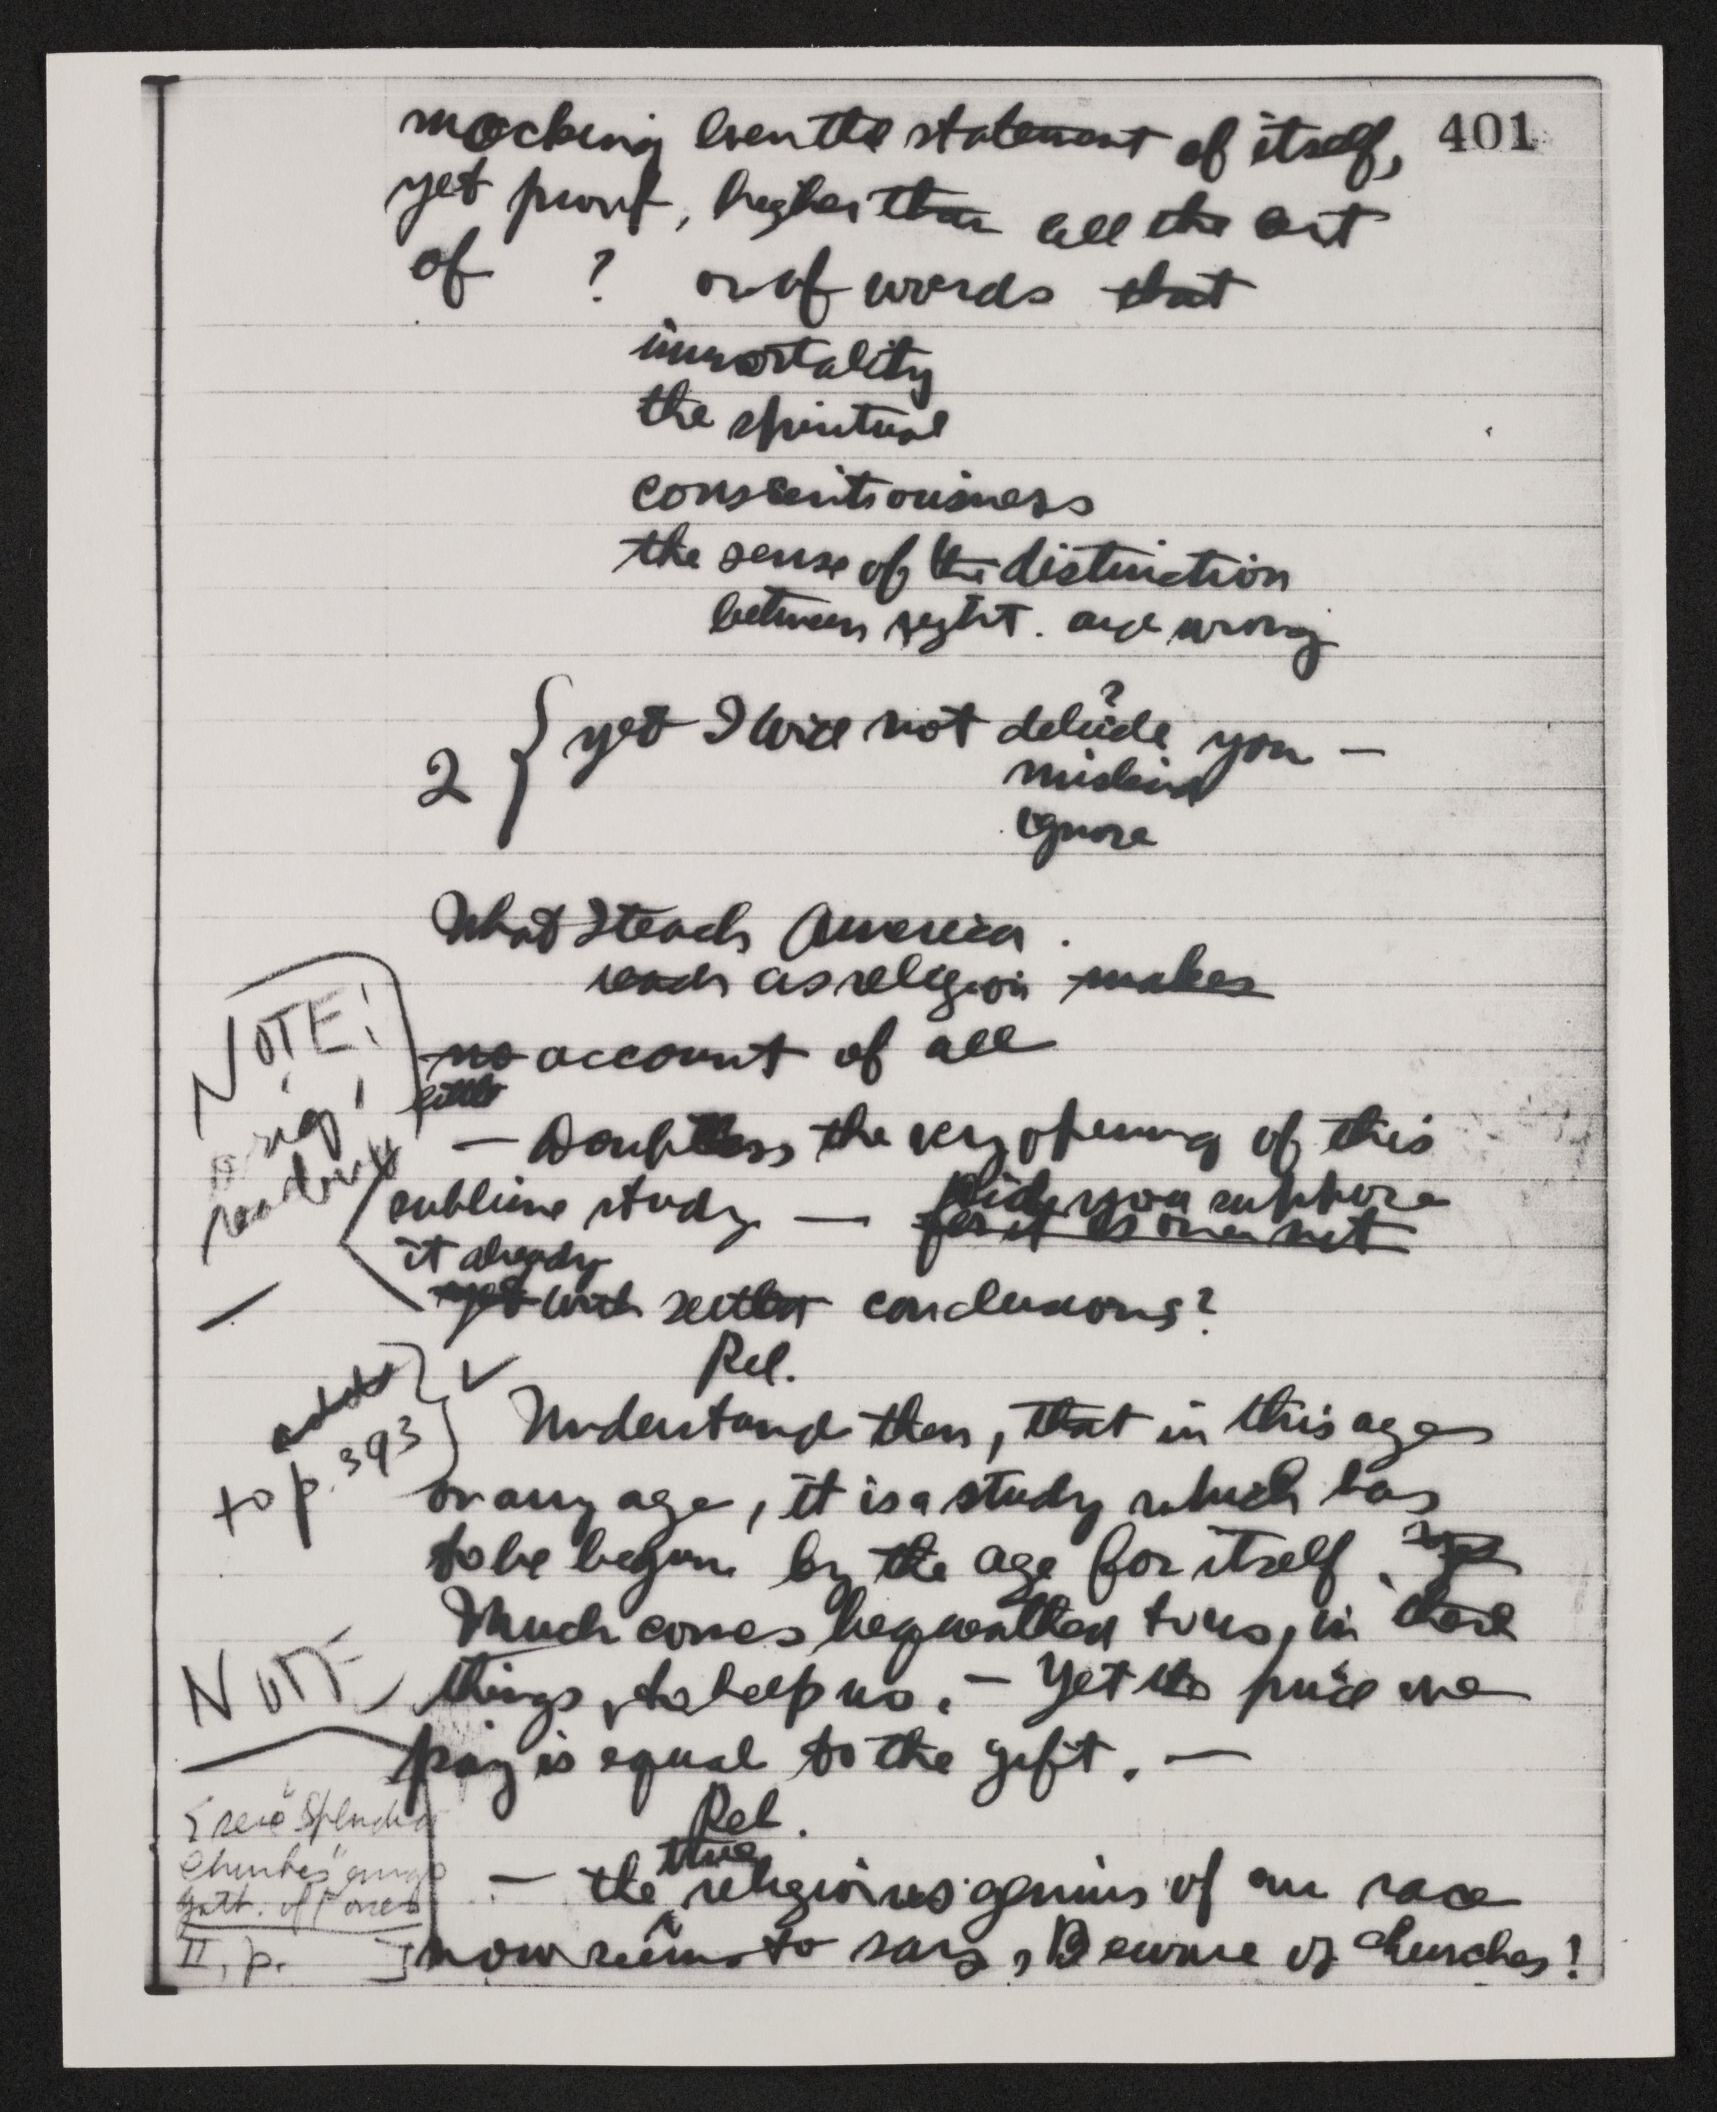 401
mocking even the statement of itself,
yet proof, higher than all the art
of ? or of words that
immortality
the spiritual
conscientiousness
the sense of the distinction
between right . and wrong
2 { yet I will not delude you —
?
mislead
ignore
What I teach America .
reach as religion makes
no account of all
little
NOTE!
orig!
reading
— Doubtless the very opening of this
sublime study — Did you suppose
for it is one not
it already
yet with settled conclusions?
Rel.
adds
to p. 393
✓ Understand then, that in this age
or any age, it is a study which has
to be begun by the age for itself.
Much comes bequeathed to us, in these
NOTE
things, to help us. — Yet the price we
pay is equal to the gift. —
Rel.
true
— the religious genius of our race
now seems to say, Beware of Churches!
[see "Splendid
Churches" among
gath. of forces
II, p. ]